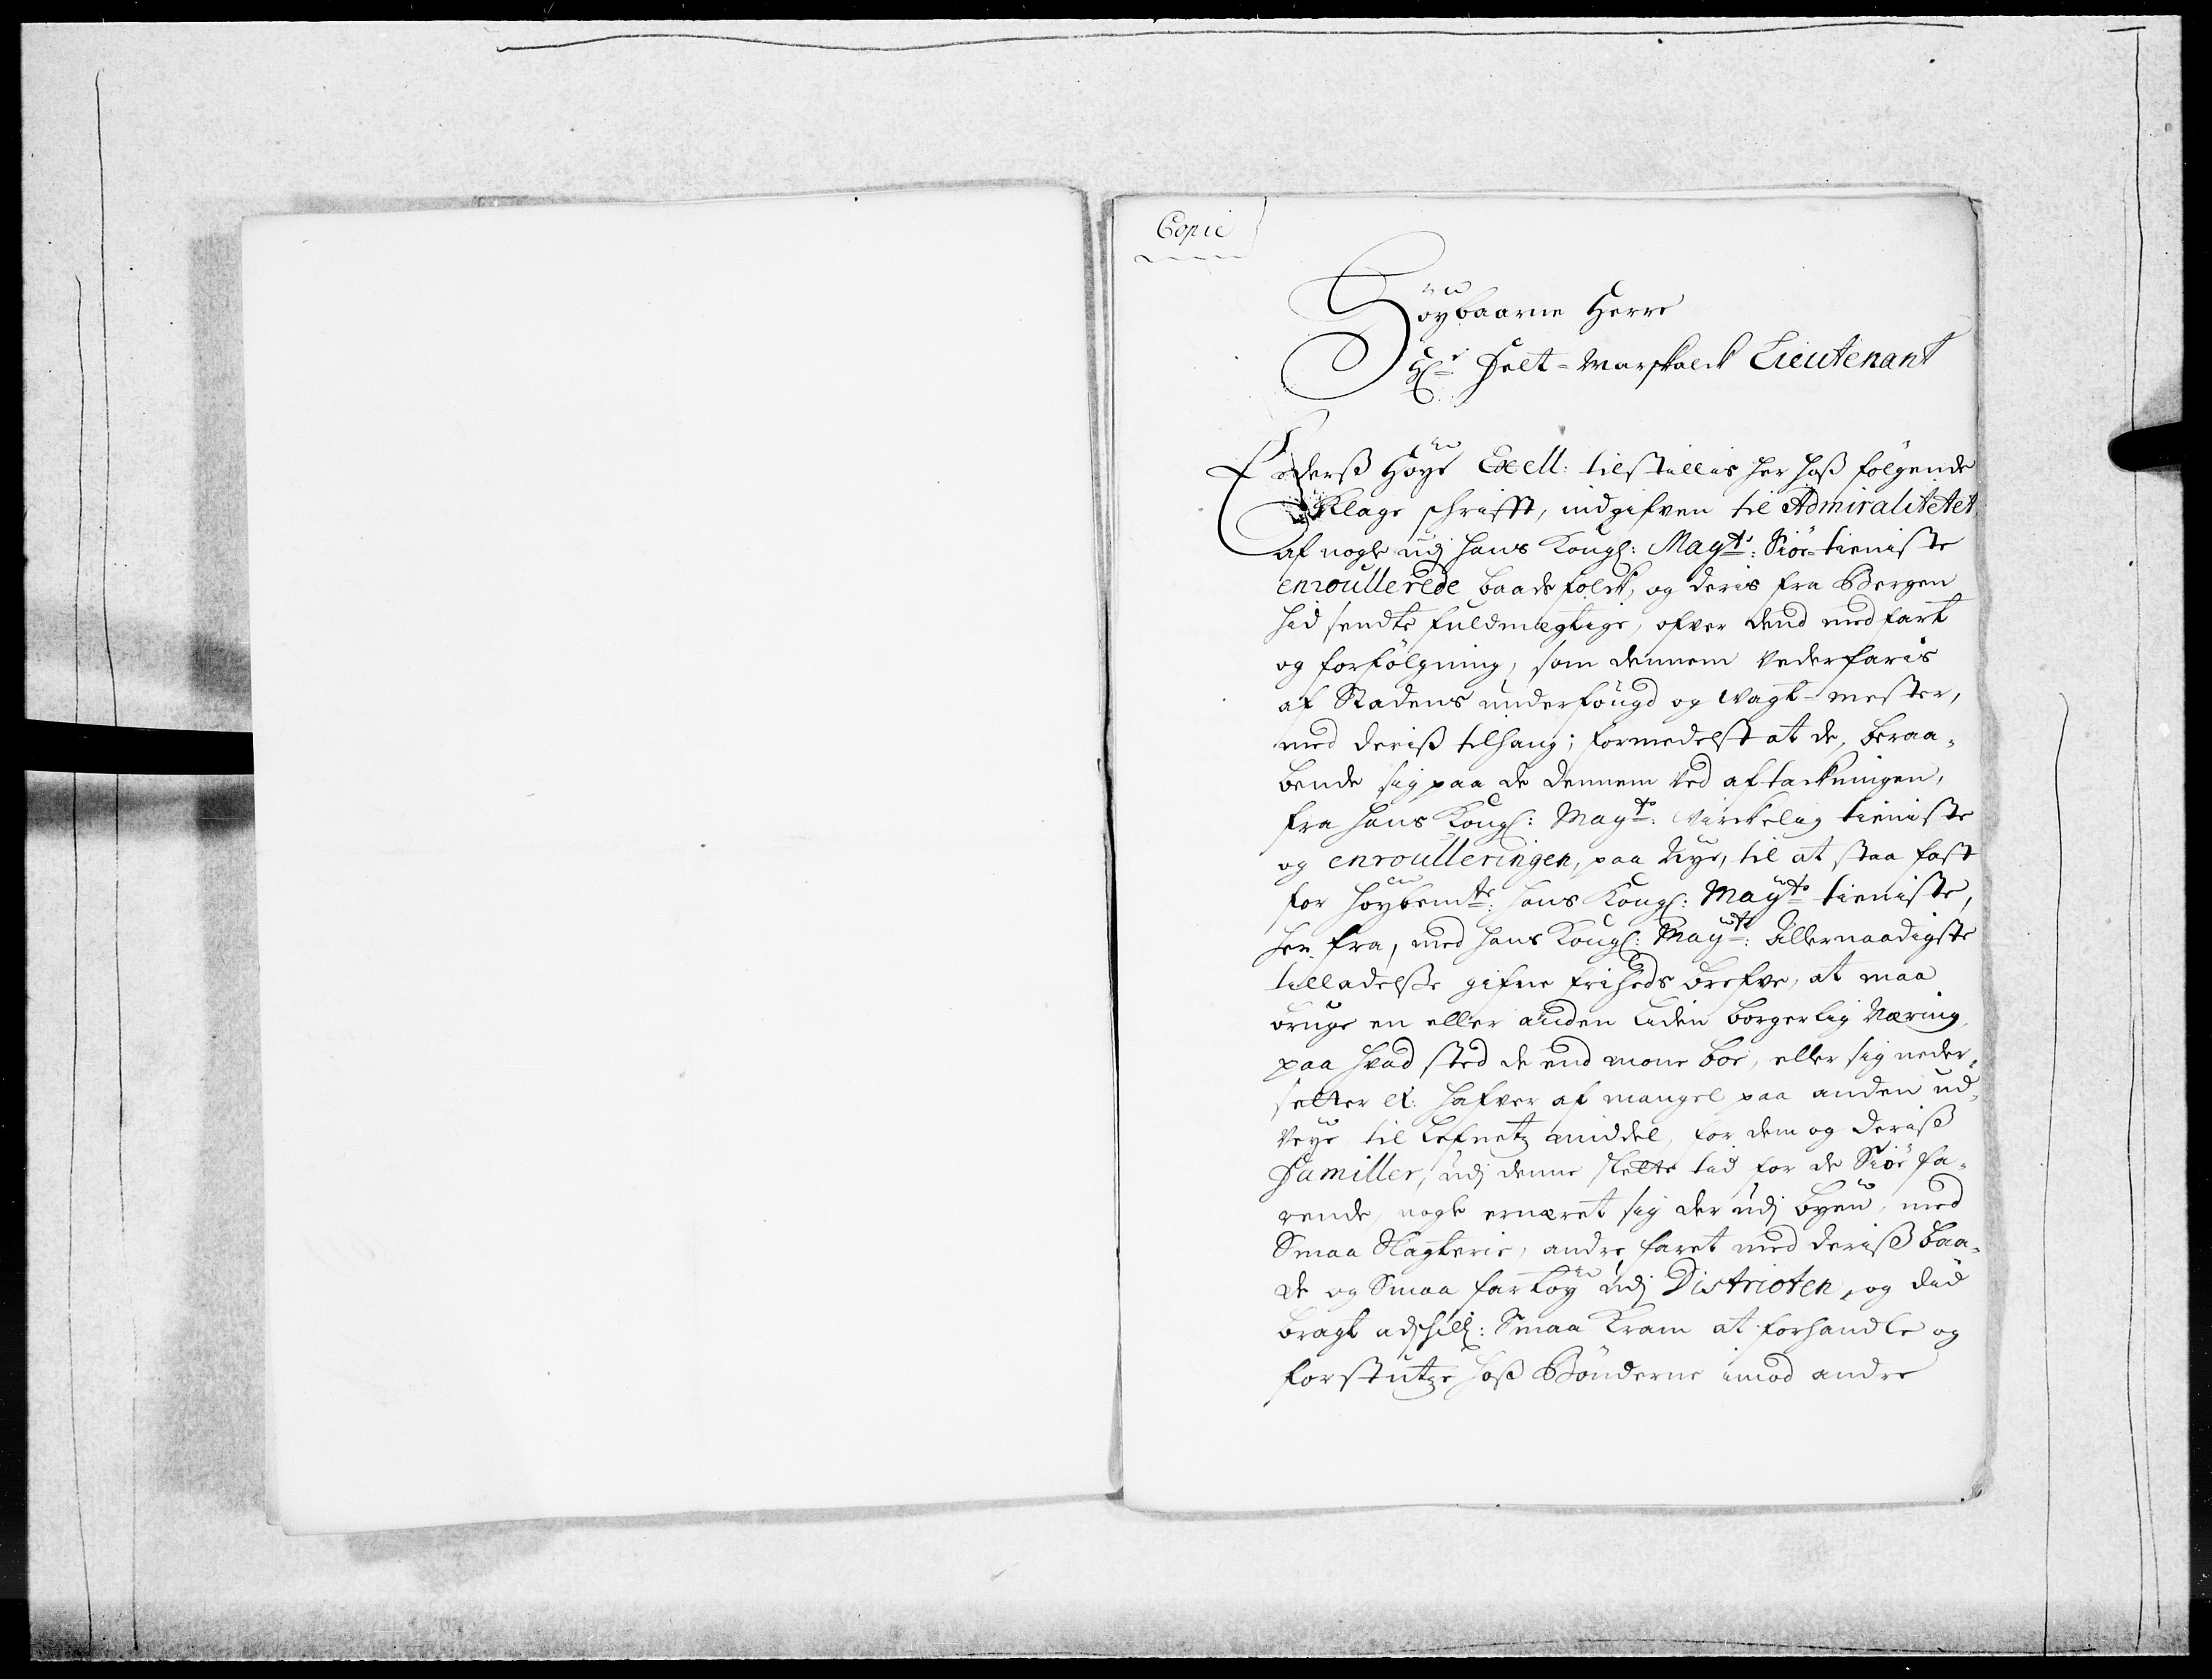 Copie
Höybaarne Herre
Hr: Felt-Marskalck Lieutenant
Eders Höye Excell: tilstillis her hoß fölgende
Klage schrifft, indgifven til Admiralitetet,
af nogle udj Hans Kongl: Mayts: Siöe-tieniste
enroullerede baadsfolck, og deris fra Bergen
hid sendte fuldmægtige, ofver dend medfart
og forfölgning, som dennem Vederfaris
af Stadens underfougd og Vagt-mester,
med deriß tilhang; formedelst at de, beraa-
bende sig paa de dennem ved aftackningen,
fra Hans Kongl: Mayts: Virckelig tieniste
og enroulleringen, paa Nye, til at staa fast
for höybemte: Hans Kongl: Mayts tieniste,
her fra, med Hans Kongl: Mayts: Allernaadigste
tilladelße gifne friheds brefve, at maa
bruge en eller anden liden borgerlig Næring,
paa hvad sted de end mone boe, eller sig neder-
setter &: hafver af mangel paa anden ud-
veye til Lefnetz middel, for dem og deriß
Familler, udj denne slette tid for de Siöe fa-
rende, nogle ernæret sig der udj byen, med
Smaa Slagterie, andre faret med deriß baa-
de og Smaa fartöy udj Districten, og did
bragt adskill: Smaa Kram at forhandle og
forstutze hoß Bönderne imod andre